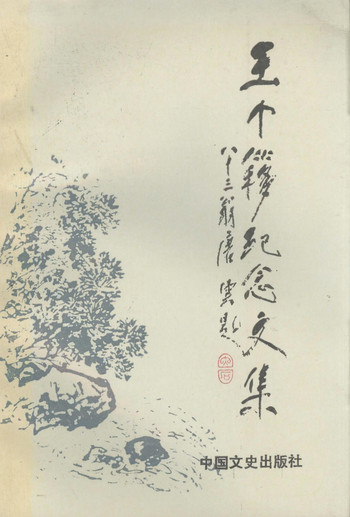 王个簃纪念文集
八十三翁唐云题
中国文史出版社